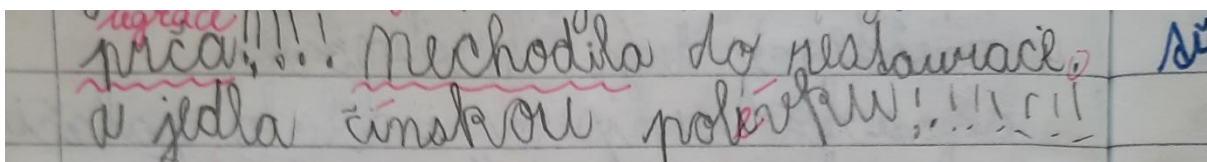 ugrácé
prča!!!! Nechodila do restaurace.
a jedla čínskou polévku!!!!!!!